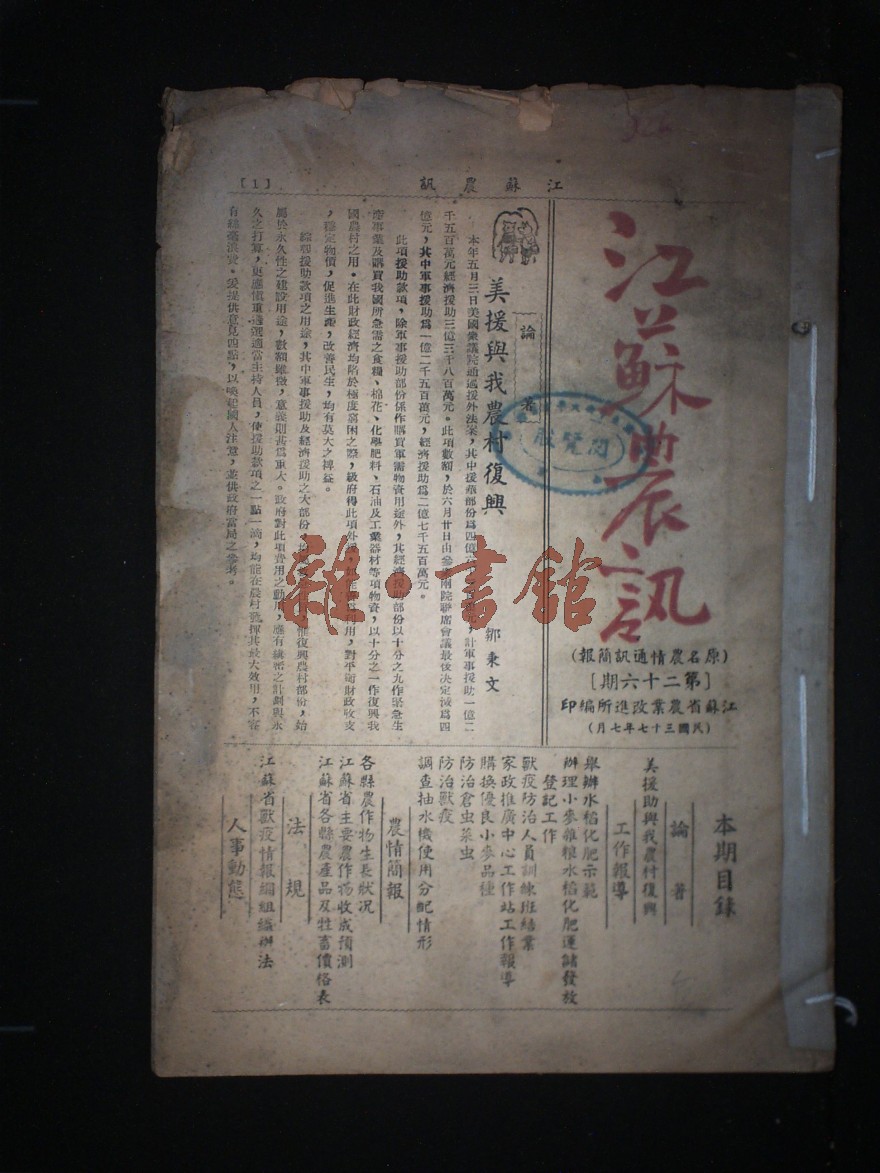 江蘇農訊
[1]
江蘇農訊
(原名農情通訊簡報)
[第二十六期]
江蘇省農業改進所編印
(民國三十七年七月)
論著
美援與我農村復興
鄒秉文
本年五月三日美國衆議院通過援外法案,其中援華部份爲四億
千五百萬元經濟援助三億三千八百萬元。此項數額,於六月廿日由參衆兩院聯席會議最後決定減爲四
億元,其中軍事援助爲一億二千五百萬元,經濟援助爲二億七千五百萬元。
此項援助款項,除軍事援助部份係作購買軍需物資用途外,其經濟援助部份以十分之九作緊急生
產事業及購買我國所急需之食糧、棉花、化學肥料、石油及工業器材等項物資,以十分之一作復興我
國農村之用。在此財政經濟均陷於極度窮困之際,級府得此項外援,用,對平衡財政收支
,穩定物價,促進生產,改善民生,均有莫大之裨益。
綜觀援助款項之用途,其中軍事援助及經濟援助之大部份,復興農村部份,始
屬於永久性之建設用途,數額雖微,意義則甚爲重大。政府對此項費用之動用,應有縝密之計劃與永
久之打算,更應慎重遴選適當主持人員,使援助款項之一點一滴,均能在農村發揮其最大效用,不容
有絲毫浪費。爰提供意見四點,以喚起國人注意,並供政府當局之參考。
閱覽
雜·書館
本期目錄
論著
美援助與我農村復興
工作報導
舉辦水稻化肥示範
辦理小麥雜糧水稻化肥運儲發放
登記工作
獸疫防治人員訓練班結業
家政推廣中心工作站工作報導
購換優良小麥品種
防治倉虫菜虫
防治獸疫
調查抽水機使用分配情形
農情簡報
各縣農作物生長狀況
江蘇省主要農作物收成預測
江蘇省各縣農產品及牲畜價格表
法規
江蘇省獸疫情報網組織辦法
人事動態